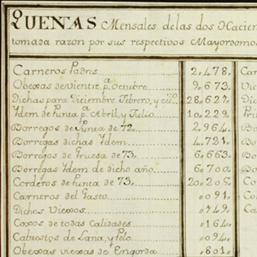 QUENTAS Mensales de las dos Hacien
tomada razon por sus respectivos Mayoromo
Carneros Padres 2,478.
Obexas de Vientre pa. Octubre 9,673.
Dichas para Diciembre, Febrero, y 28,627.
Ydem de Junea pa. Abril y Julio 10,229.
Borregos de Junea de 72 2,964.
Borregas dichas Ydem 4,721.
Borregos de trueba de 73 6,663.
Borregas Ydem de dicho año 6,700.
Corderos de Junea de 73 20,205.
Carneros del Gasto .091.
Dichos Viexos .149.
Capos de todas calidades .164.
Cabritos de Lana, y Pelo .094.
Obexas viexas de Engorda .801.